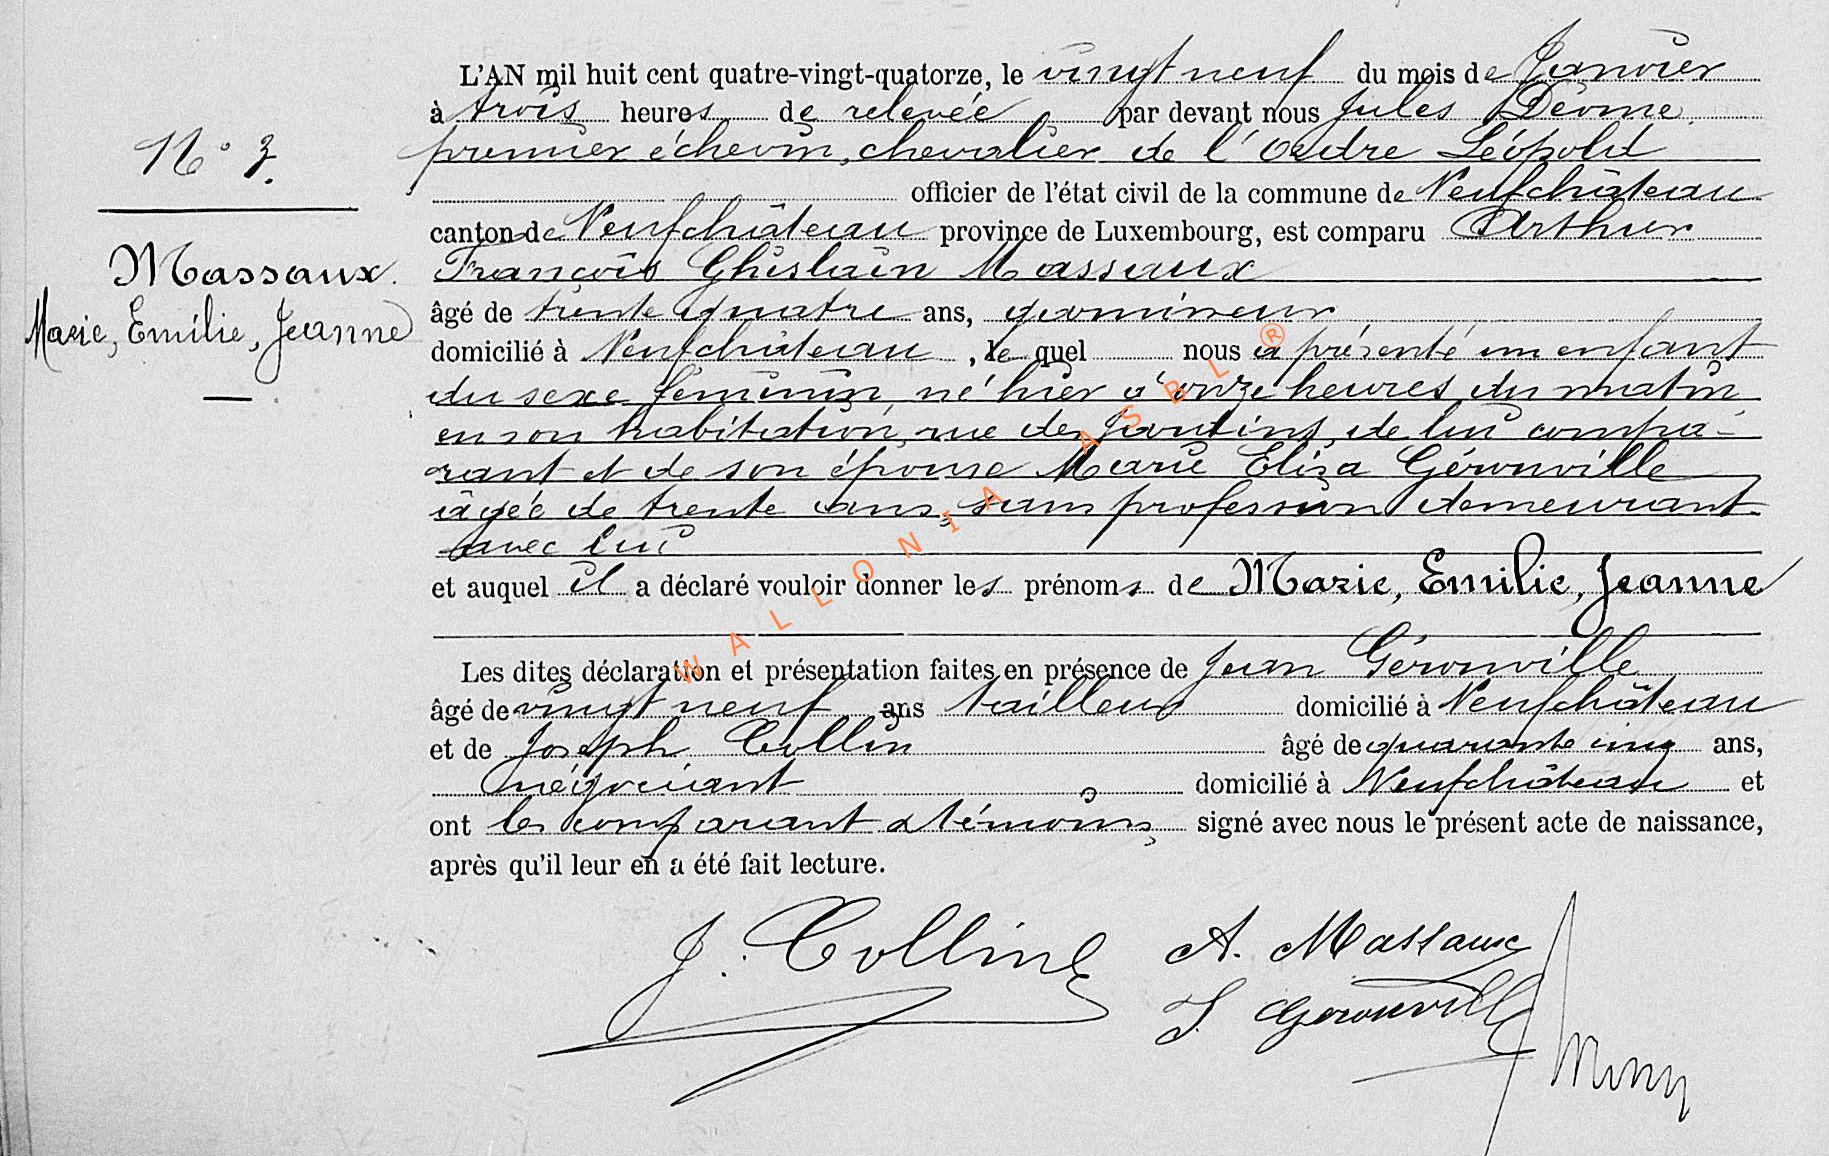 L'AN mil huit cent quatre-vingt-quatorze, le vingt neuf du mois de Janvier
à trois heures de relevée par devant nous Jules Déome,
premier échevin, chevalier de l'Ordre Léopold
officier de l'état civil de la commune de Neufchâteau
canton de Neufchâteau province de Luxembourg, est comparu Arthur
François Ghislain Massaux
âgé de trente quatre ans, garnisseur
domicilié à Neufchâteau, lequel nous a présenté un enfant
du sexe féminin, né hier à onze heures du matin
en son habitation, rue des Jardins, de lui compa-
rant et de son épouse Marie Eliza Géronville
âgée de trente ans, sans profession demeurant
avec lui
et auquel il a déclaré vouloir donner les prénoms de Marie, Emilie, Jeanne
Les dites déclaration et présentation faites en présence de Jean Géronville
âgé de vingt neuf ans tailleur domicilié à Neufchâteau
et de Joseph Collin âgé de quarante cinq ans,
négociant domicilié à Neufchâteau et
ont les comparant et témoins signé avec nous le présent acte de naissance,
après qu'il leur en a été fait lecture.
N° 3.
Massaux.
Marie, Emilie, Jeanne
J. Collin A. Massaux
J. Geronville
WALLONIA ASBL ®